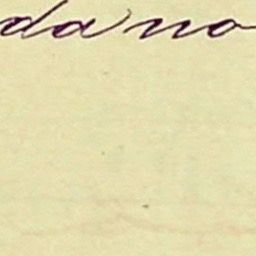 da no